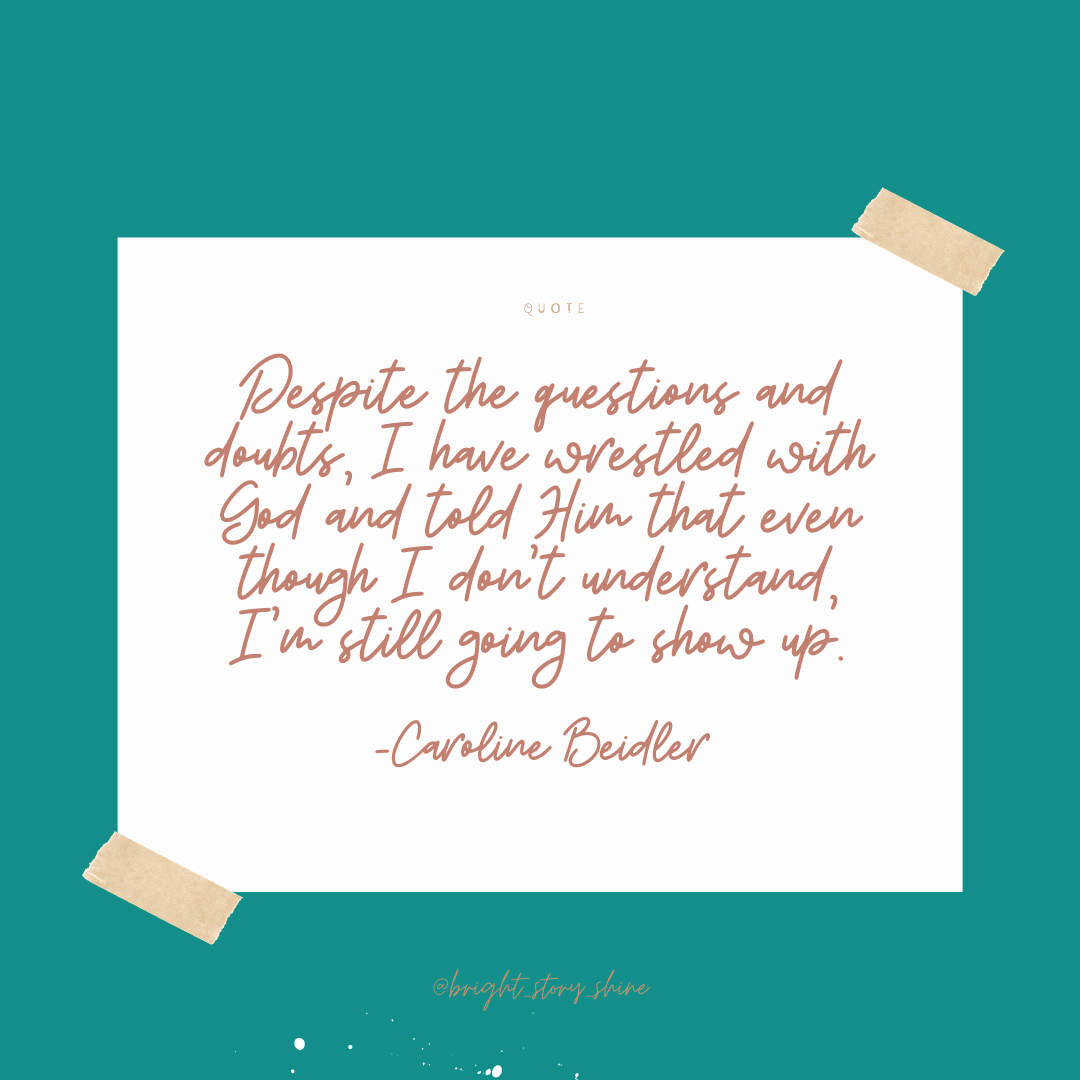 QUOTE
Despite the questions and
doubts, I have wrestled with
God and told Him that even
though I don't understand,
I'm still going to show up.
-Caroline Beidler
@bright_story_shine